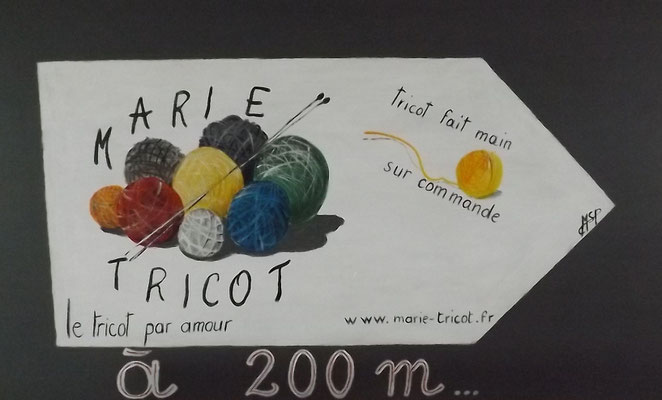 MARIE
TRICOT
le tricot par amour
tricot fait main
sur commande
www.marie-tricot.fr
à 200 m...